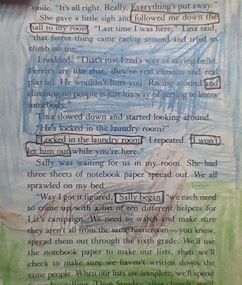 smile. "It's all right. Really. Everything's put away."
She gave a little sigh and followed me down the
hall to my room. "Last time I was here," Tina said,
"that ferret thing came racing around and tried to
climb on me."
I nodded. "That's just Fred's way of saying hello.
Ferrets are like that, they're real climbers and real
playful. He wouldn't hurt you. Racing around and
climbing on people is just his way of getting to know
somebody."
Tina slowed down and started looking around.
"He's locked in the laundry room?"
"Locked in the laundry room," I repeated. "I won't
let him out while you're here."
Sally was waiting for us in my room. She had
three sheets of notebook paper spread out. We all
sprawled on my bed.
"Way I got it figured," Sally began, "we each need
to come up with a list of ten different places for
Liz's campaign. We need to watch and make sure
they aren't all from the same homeroom—you know,
spread them out through the sixth grade. We'll use
the notebook paper to make our lists, then we'll
check to make sure we haven't written down the
same people. When our lists are complete, we'll spend